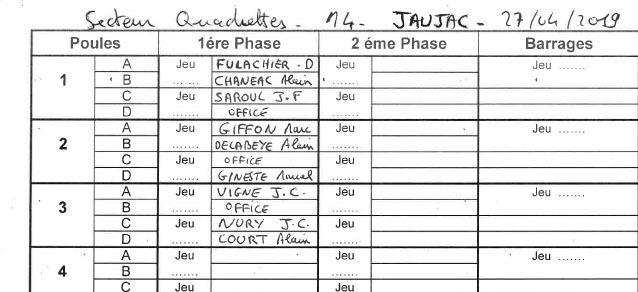 Secteur Quadrettes - M4 - JAUJAC - 27/04/2019
Poules 1ére Phase 2 éme Phase Barrages
1 A Jeu FULACHIER - D Jeu Jeu .......
B ....... CHANEAC Alain .......
C Jeu SAROUL J.F Jeu
D ....... OFFICE .......
2 A Jeu GIFFON Marc Jeu Jeu .......
B ....... DELABEYE Alain .......
C Jeu OFFICE Jeu
D ....... GINESTE Marcel .......
3 A Jeu VIGNE J.C. Jeu Jeu .......
B ....... OFFICE .......
C Jeu NURY J.C. Jeu
D ....... COURT Alain .......
4 A Jeu Jeu Jeu .......
B ....... .......
C Jeu Jeu